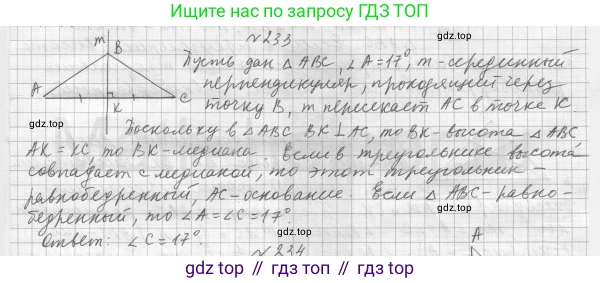 Ищите нас по запросу ГДЗ ТОП
gdz.top
№233
m
B
A
K
C
Пусть дан △ ABC, ∠A=17°, m-серединный
перпендикуляр, проходящий через
точку B, m пересекает AC в точке K.
Поскольку в △ ABC BK⊥AC, то BK-высота △ ABC
AK=KC, то BK-медиана. Если в треугольнике высота
совпадает с медианой, то этот треугольник-
равнобедренный, AC-основание. Если △ ABC-равно-
бедренный, то ∠A=∠C=17°.
Ответ: ∠C=17°.
№224
A
gdz.top
gdz.top
gdz.top
gdz.top
gdz.top
gdz top // гдз топ // gdz.top